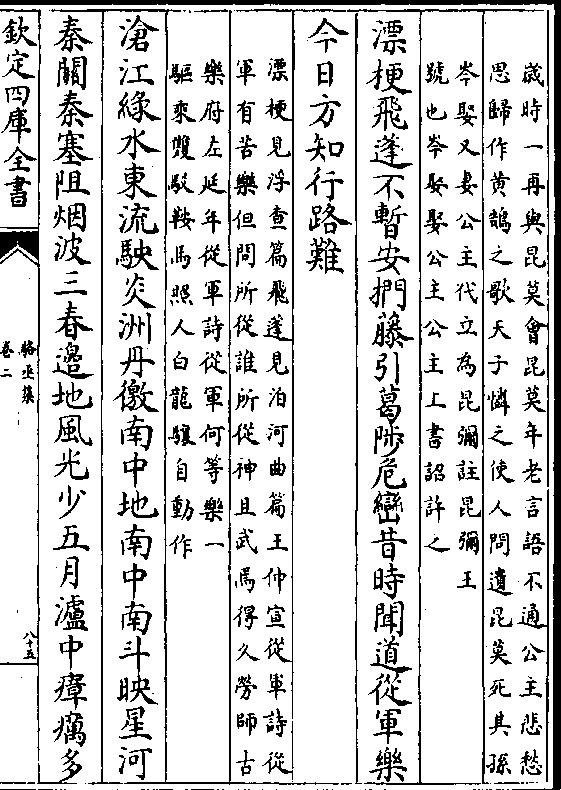 歲時一再與昆莫會昆莫年老言語不通公主悲愁
思歸作黄鵠之歌天子憐之使人問遺昆莫死其孫
岑娶又妻公主代立為昆彌註昆彌王
號也岑娶娶公主公主上書詔許之
漂梗飛蓬不暫安捫藤引葛陟危巒昔時聞道從軍樂
今日方知行路難
漂梗見浮查篇飛蓬見泊河曲篇王仲宣從軍詩從
軍有苦樂但問所從誰所從神且武焉得久勞師古
樂府左延年從軍詩從軍何等樂一
驅乘雙駁鞍馬照人白龍驤自動作
滄江緑水東流駛炎洲丹徼南中地南中南斗映星河
秦關秦塞阻烟波三春邉地風光少五月瀘中瘴癘多
欽定四庫全書
駱丞集
卷二
八十五